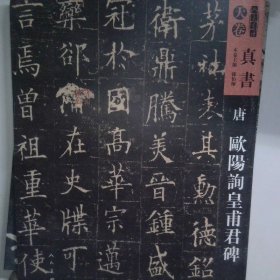 大卷
真書
唐 歐陽詢皇甫君碑
茅社表其勳德銘
衛鼎騰美晉鐘盛
冠於國高華宗邁
欒郤在史牒可
言焉曾祖重華使